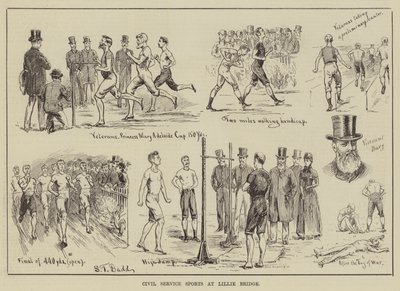 Veterans taking
a preliminary canter.
Veterans. Princess Mary Adelaide Cup. 150 Yds.
Two miles walking handicap.
Viscount
Bury
Final of 440 yds. (open).
S. T. Dadd
High jump.
After the Tug of War.
CIVIL SERVICE SPORTS AT LILLIE BRIDGE.